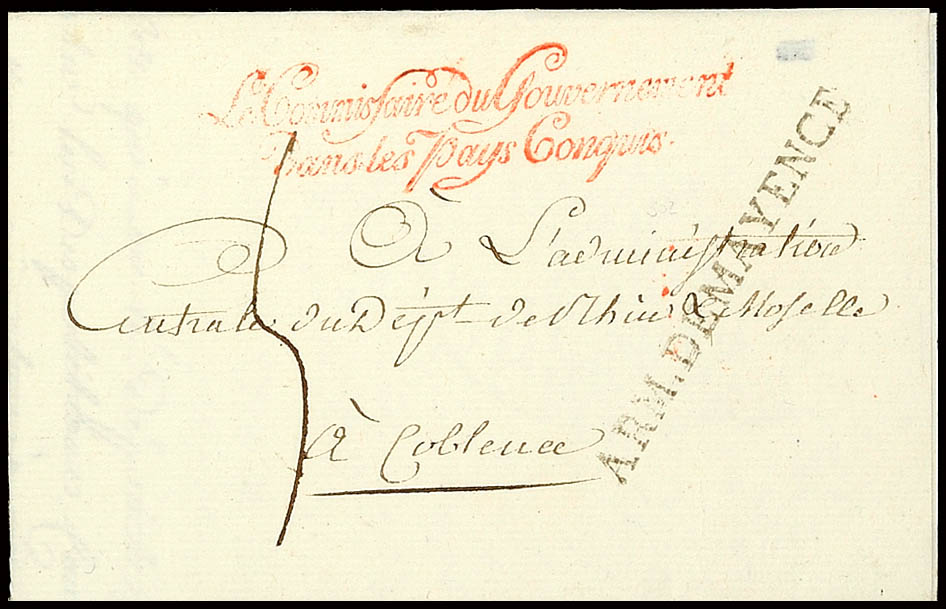 Le Commissaire du Gouvernement
Dans les Pays Conquis.
ARM. DE MAYENCE
À L'administration
Centrale du Dépt. de Rhin & Moselle
à Coblence